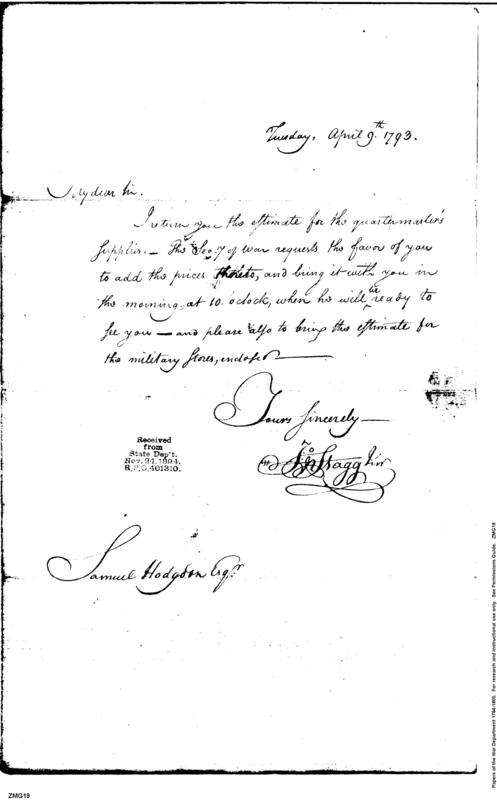 Tuesday, April 9.th 1793.
My dear Sir.
I return you the estimate for the quartermaster's
supplies. — The Sec.y of war requests the favor of you
to add the prices thereto, and bring it with you in
the morning, at 10. oclock, when he will be ready to
see you — and please also to bring the estimate for
the military stores, endosed —
Yours sincerely —
Jno Stagg Junr
Received
from
State Dep't.
Nov. 24, 1894.
R.P.O. 401310.
Samuel Hodgdon Esqr.
Papers of the War Department 1784-1800. For research and instructional use only. See Permissions Guide. ZMG19
ZMG19